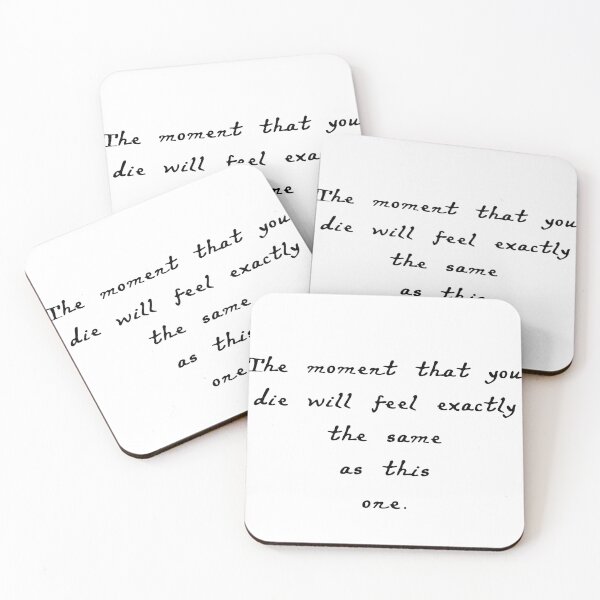 The moment that you
die will feel exa
ne
The moment that you
die will feel exactly
the same
as this
The moment that you
die will feel exactly
the same
as this
one.
The moment that you
die will feel exactly
the same
as this
one.